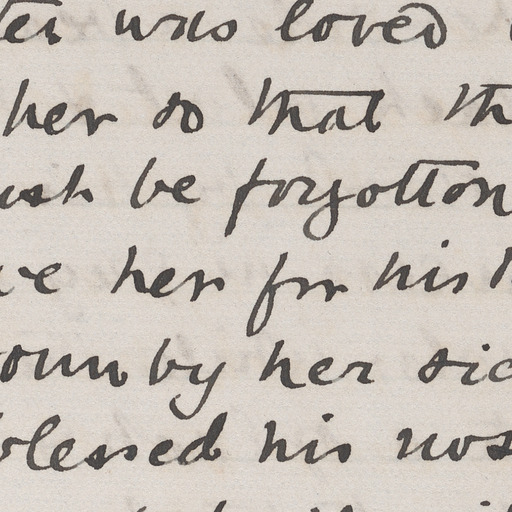 ter was loved
her so that th
ush be forgotton
ve her for his
oun by her sid
blessed his nos